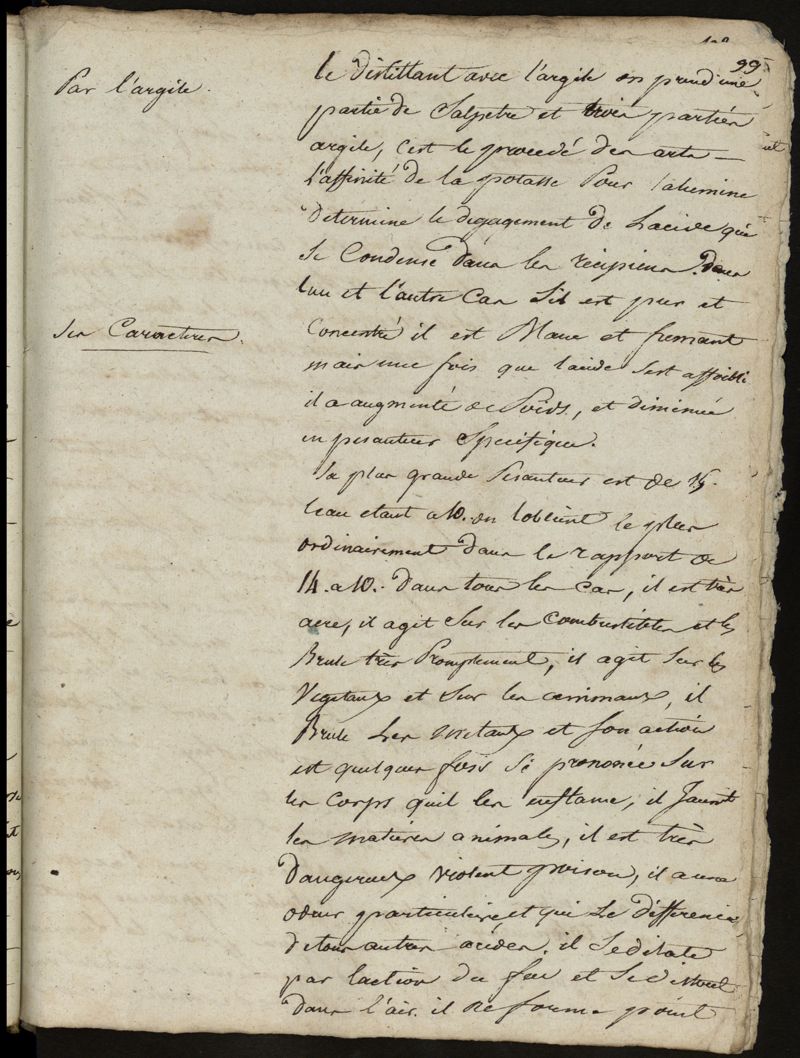 99
Par l'argile.
le distillant avec l'argile on prend une
partie de Salpetre et trois parties
argile, c'est le procedé des arts —
l'affinité de la potasse Pour l'alumine
determine le degagement de Lacide qui
se Condense dans les recipiens. dans
lun et l'autre Cas Sil est pur et
ses Caracteres.
Concentré il est Blanc et fumant
mais une fois que lacide sest affoibli
il a augmenté de Poids, et diminué
en pesanteur Specifique.
Sa plus grande Pesanteur est de 15.
leau etant a 10. on lobtient le plus
ordinairement dans le rapport de
14. a 10. dans tous les Cas, il est très
acre, il agit Sur les Combustibles et les
Brule très Promptement, il agit Sur les
Vegetaux et Sur les animaux, il
Brule Les metaux et son action
est quelques fois Si prononcée Sur
les Corps quil les enflame, il Jaunit
les matieres animales, il est très
Dangereux violent poison, il a une
odeur particuliere et qui Le differencie
de tous autres acides. il Se dilate
par laction du feu et Se dissout
dans l'air. il ne forme point